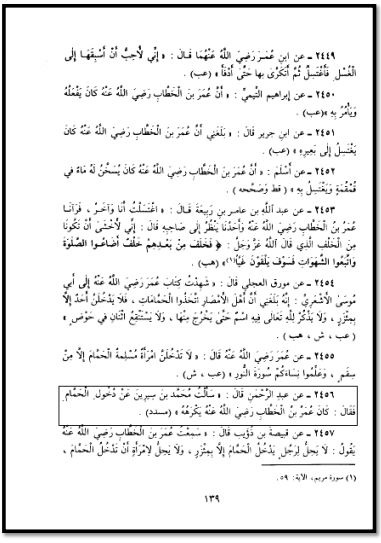 ٢٤٤٩ ـ عن ابنِ عُمَرَ رَضِيَ اللَّهُ عَنْهُمَا قَالَ : « إِنِّي لَأُحِبُّ أَنْ أَسْبِقَهَا إِلَى
الْغُسْلِ فَأَغْتَسِلَ ثُمَّ أَتَكَرَّى بِهَا حَتَّى أَدْفَأَ » (عب) .
٢٤٥٠ ـ عن إبراهيم التَّيْمِيِّ : « أَنَّ عُمَرَ بنَ الْخَطَّابِ رَضِيَ اللَّهُ عَنْهُ كَانَ يَفْعَلُهُ
وَيَأْمُرُ بِهِ » (عب) .
٢٤٥١ ـ عن ابنِ جرير قَالَ : « بَلَغَنِي أَنَّ عُمَرَ بنَ الْخَطَّابِ رَضِيَ اللَّهُ عَنْهُ كَانَ
يَغْتَسِلُ إِلَى بَعِيرِهِ » (عب) .
٢٤٥٢ ـ عن أَسْلَمَ : « أَنَّ عُمَرَ بنَ الْخَطَّابِ رَضِيَ اللَّهُ عَنْهُ كَانَ يُسَخَّنُ لَهُ مَاءٌ فِي
قُمْقُمَةٍ وَيَغْتَسِلُ بِهِ » ( قط وَصَحَّحه ) .
٢٤٥٣ ـ عن عبد اللَّهِ بن عامر بن رَبِيعَةَ قَالَ : « اغْتَسَلْتُ أَنَا وَآخَرُ ، فَرَآنَا
عُمَرُ بنُ الْخَطَّابِ رَضِيَ اللَّهُ عَنْهُ وَأَحَدُنَا يَنْظُرُ إِلَى صَاحِبِهِ قَالَ : إِنِّي لَأَخْشَى أَنْ تَكُونَا
مِنَ الْخَلَفِ الَّذِي قَالَ اللَّهُ عَزَّ وَجَلَّ : ﴿ فَخَلَفَ مِنْ بَعْدِهِمْ خَلْفٌ أَضَاعُوا الصَّلَوٰةَ
وَاتَّبَعُوا الشَّهَوَاتِ فَسَوْفَ يَلْقَوْنَ غَيًّا﴾(١) » (هب) .
٢٤٥٤ ـ عن مورق العجلي قَالَ : « شَهِدْتُ كِتَابَ عُمَرَ رَضِيَ اللَّهُ عَنْهُ إِلَى أَبِي
مُوسَىٰ الْأَشْعَرِيِّ : إِنَّهُ بَلَغَنِي أَنَّ أَهْلَ الْأَمْصَارِ اتَّخَذُوا الْحَمَّامَاتِ ، فَلَا يَدْخُلَنَّ أَحَدٌ إِلَّا
بِمِئْزَرٍ ، وَلَا يَذْكُرُ لِلَّهِ تَعَالَى فِيهِ اسْمٌ حَتَّىٰ يَخْرُجَ مِنْهَا ، وَلَا يَسْتَنْقِعُ اثْنَانِ فِي حَوْضٍ »
( عب ، ش ، هب ) .
٢٤٥٥ ـ عن عُمَرَ رَضِيَ اللَّهُ عَنْهُ قَالَ : « لَا تَدْخُلَنَّ امْرَأَةٌ مُسْلِمَةٌ الْحَمَّامَ إِلَّا مِنْ
سِقَمٍ ، وَعَلِّمُوا نِسَاءَكُمْ سُورَةَ النُّورِ » (عب ، ش) .
٢٤٥٦ ـ عن عبدِ الرَّحْمَنِ قَالَ : « سَأَلْتُ مُحَمَّد بن سِيرين عَنْ دُخُولِ الْحَمَّامِ ،
فَقَالَ : كَانَ عُمَرُ بْنُ الْخَطَّابِ رَضِيَ اللَّهُ عَنْهُ يَكْرَهُهُ » (مسدد) .
٢٤٥٧ ـ عن قبيصة بن ذُؤَيْب قَالَ : « سَمِعْتُ عُمَرَ بنَ الْخَطَّابِ رَضِيَ اللَّهُ عَنْهُ
يَقُولُ : لَا يَحِلُّ لِرَجُلٍ يَدْخُلُ الْحَمَّامَ إِلَّا بِمِئْزَرٍ ، وَلَا يَحِلُّ لِامْرَأَةٍ أَنْ تَدْخُلَ الْحَمَّامَ ،
(١) سورة مريم ، الآية : ٥٩ .
١٣٩